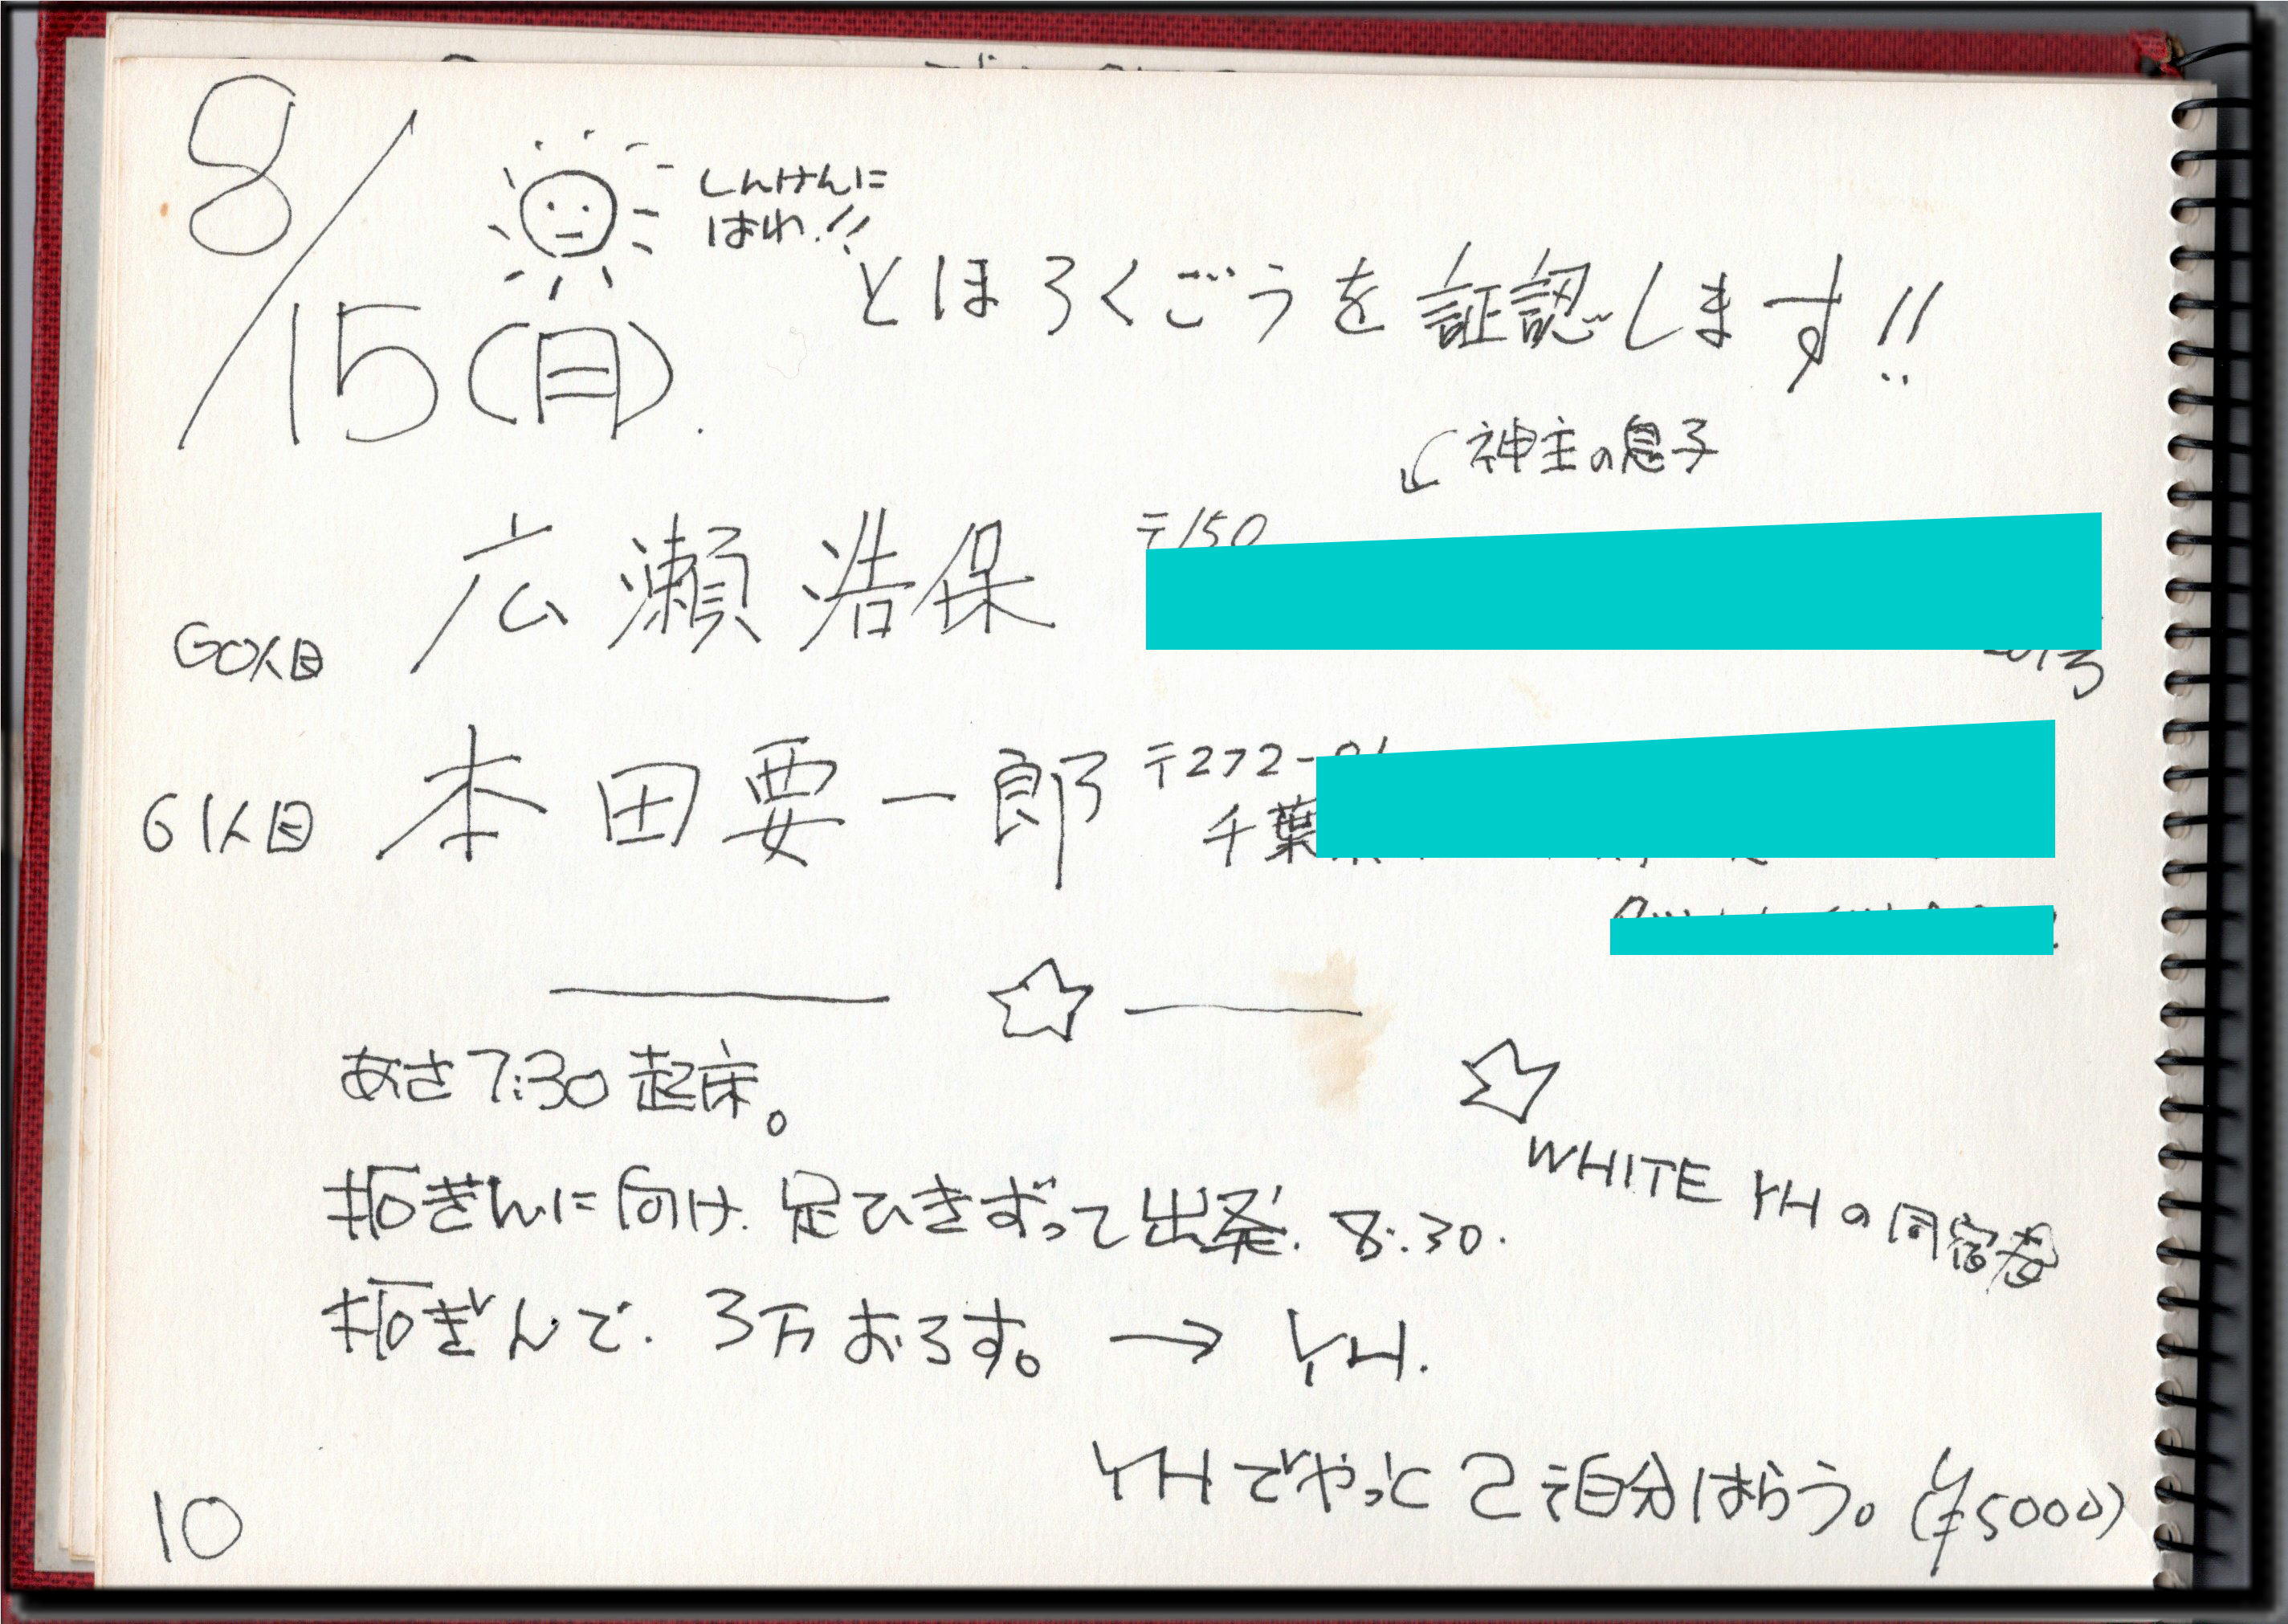 8/15(日).
しんけんに
はれ!!
とほろくごうを証認します!!
神主の息子
60人目
広瀬浩保
〒150
61人目
本田要一郎
〒272-
千葉
あさ7:30起床。
拓ぎんに向け.足ひきずって出発. 8:30.
WHITE YHの同宿者
拓ぎんで. 3万おろす。→ YH.
YHでやっと2泊分はらう。(¥5000)
10